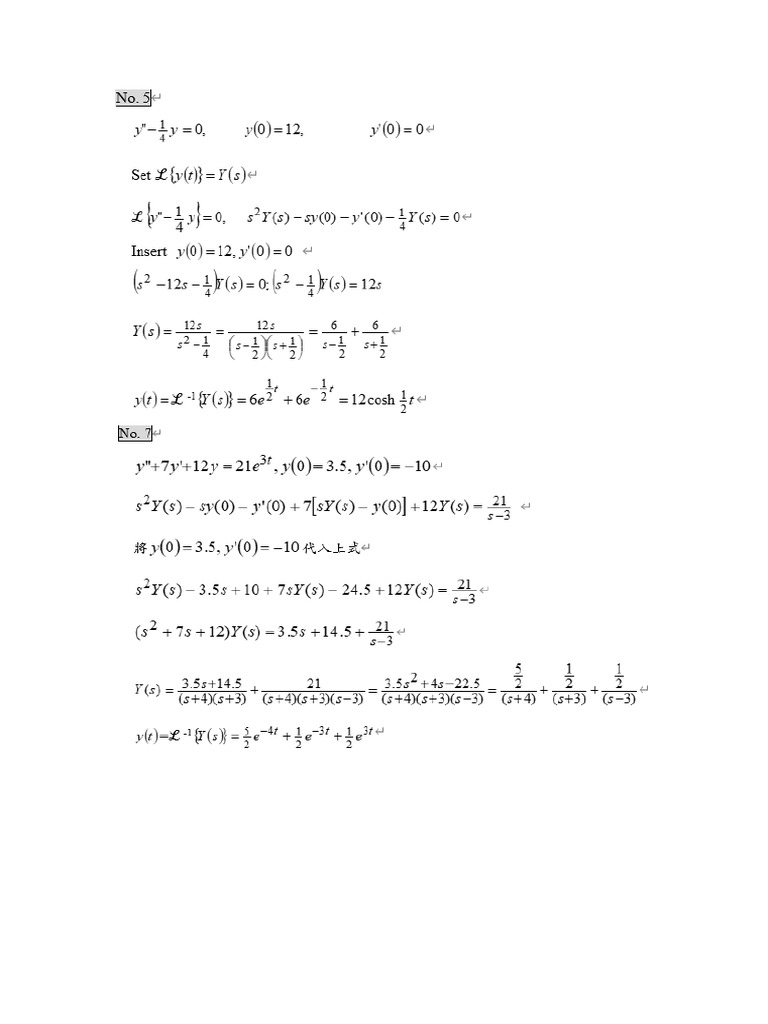 No. 5↵
y''−1/4 y = 0, y(0) = 12, y'(0) = 0↵
Set ℒ{y(t)} = Y(s)↵
ℒ{y''−1/4 y} = 0, s²Y(s) − sy(0) − y'(0) − 1/4 Y(s) = 0↵
Insert y(0) = 12, y'(0) = 0 ↵
(s² −12s − 1/4)Y(s) = 0; (s² − 1/4)Y(s) = 12s
Y(s) = 12s/(s² − 1/4) = 12s/((s − 1/2)(s + 1/2)) = 6/(s − 1/2) + 6/(s + 1/2)↵
y(t) = ℒ⁻¹{Y(s)} = 6e^(1/2 t) + 6e^(−1/2 t) = 12cosh 1/2 t↵
No. 7↵
y''+7y'+12y = 21e^(3t), y(0) = 3.5, y'(0) = −10↵
s²Y(s) − sy(0) − y'(0) + 7[sY(s) − y(0)] +12Y(s) = 21/(s−3) ↵
將 y(0) = 3.5, y'(0) = −10 代入上式↵
s²Y(s) − 3.5s + 10 + 7sY(s) − 24.5 + 12Y(s) = 21/(s−3)↵
(s² + 7s + 12)Y(s) = 3.5s +14.5 + 21/(s−3)↵
Y(s) = (3.5s+14.5)/((s+4)(s+3)) + 21/((s+4)(s+3)(s−3)) = (3.5s²+4s−22.5)/((s+4)(s+3)(s−3)) = (5/2)/(s+4) + (1/2)/(s+3) + (1/2)/(s−3)↵
y(t)=ℒ⁻¹{Y(s)} = 5/2 e^(−4t) + 1/2 e^(−3t) + 1/2 e^(3t)↵